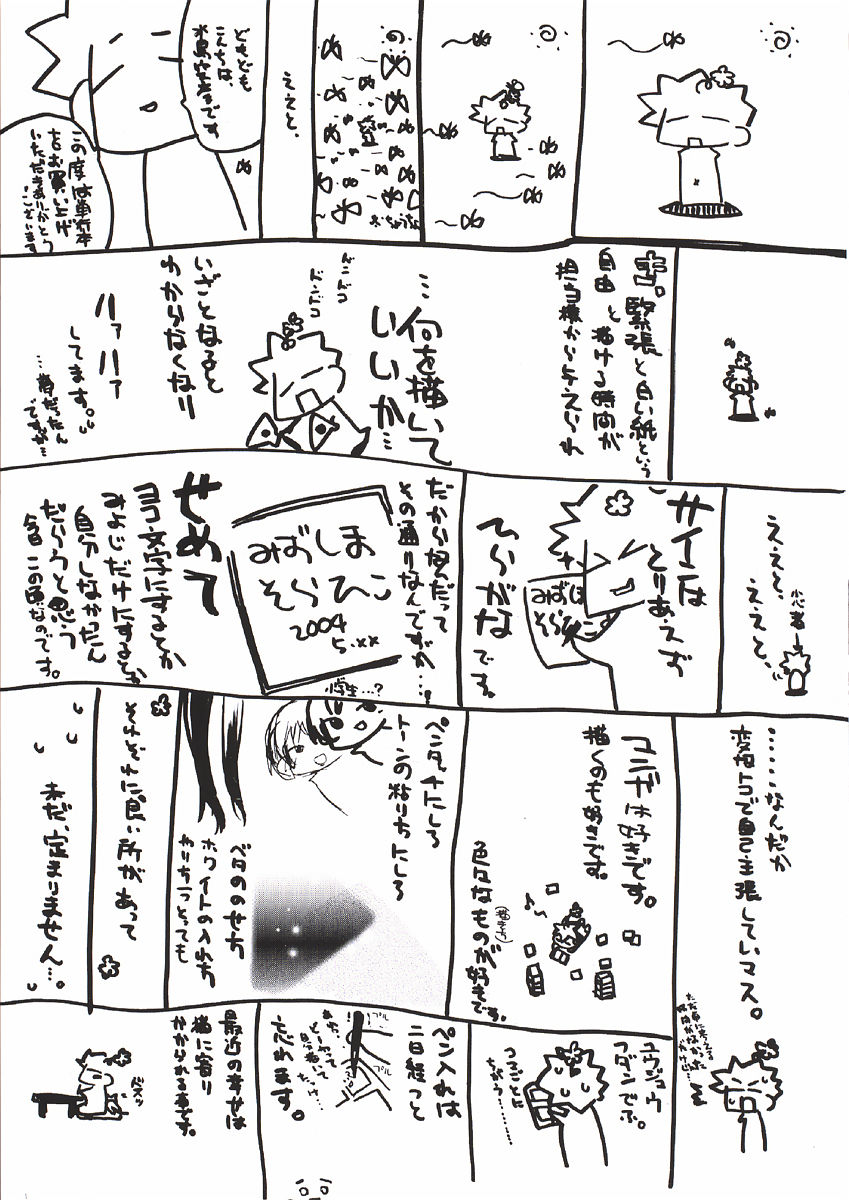 おちょうちょ
ええと、
どもども
こんちは、
水島空彦です。
この度は単行本
をお買い上げ
いただきありがとう
ございます
緊張と白い紙という
自由と描ける時間が
担当様から与えられ
…何を描いて
いいか…
ドンドコ
ドンドコ
いざとなると
わからなくなり
ハァハァ
してます。
…昔だったん
ですが…
ええと、
ええと、
小心者
サインは
とりあえず
ひらがな
です。
みずしま
そらひこ
だから何だって
その通りなんですが…。
みずしま
そらひこ
2004
5.××
小学生…?
せめて
ヨコ文字にするとか
みよじだけにするとか、
自分しなかったん
だろうと思う
今日この頃なのです。
……なんだか
変なトコで自己主張していマス。
マンガは好きです。
描くのも好きです。
色々なものが好きです。
ペンタッチにしろ
トーンの貼り方にしろ
ベタののせ方
ホワイトの入れ方
やり方一つとっても
それぞれに良い所があって
未だ、定まりません…。
ユウジュウ
フダンでぶ。
つまることに
ちがう………
ペン入れは
二日経つと
忘れます。
プル
プル
最近の幸せは
猫に寄り
かかられる事です。